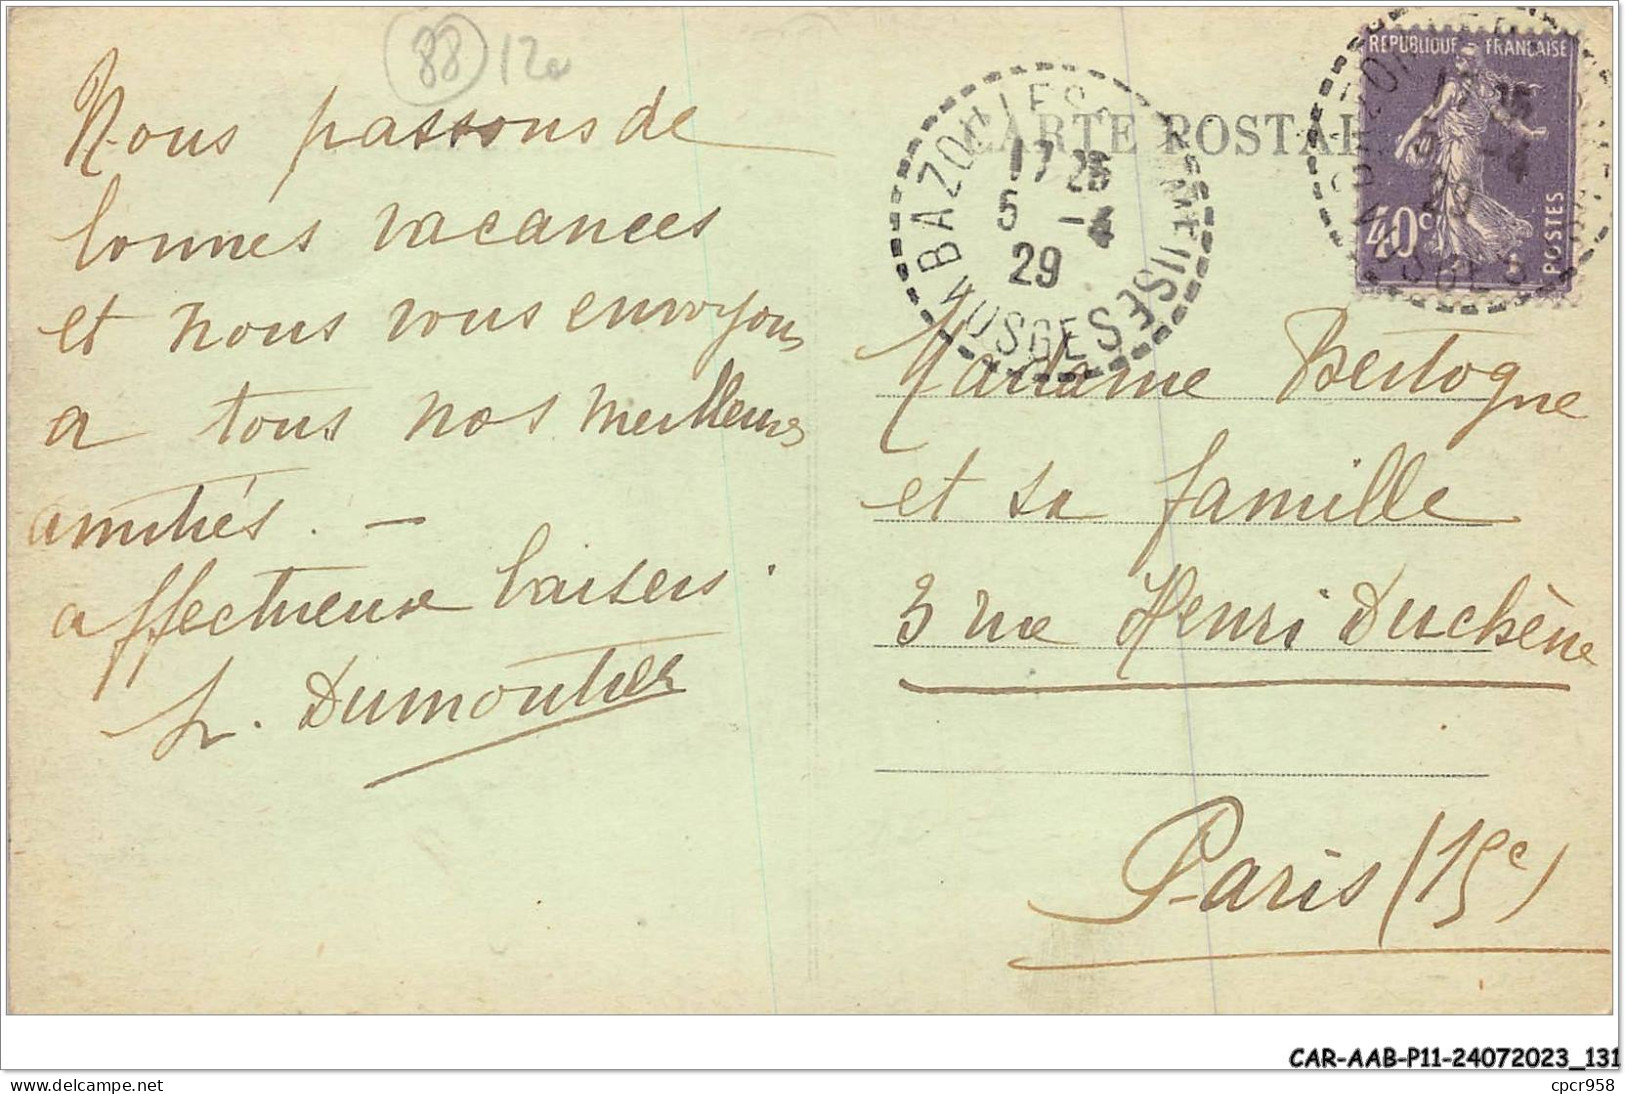 88 12e
Nous passons de
bonnes vacances
et nous vous envoyons
a tous nos meilleures
amitiés. —
affectueux baisers.
L. Dumoutier
CARTE POSTALE
BAZOILLES S MEUSE
VOSGES
17 25
5 -4
29
REPUBLIQUE FRANÇAISE
40c
POSTES
Madame Bertogne
et sa famille
3 rue Henri Duchêne
Paris (15e)
CAR-AAB-P11-24072023_131
delcampe.net
cpcr958